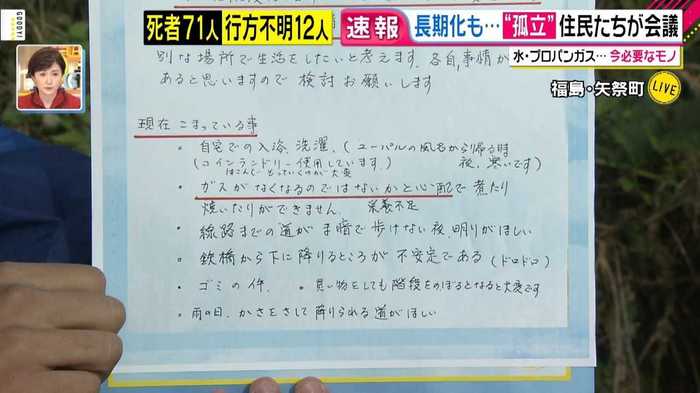 死者71人 行方不明12人
速報
長期化も…“孤立”住民たちが会議
水・プロパンガス…今必要なモノ
福島・矢祭町
LIVE
GOODDAY!
別な場所で生活をしたいと考えます。各自、事情が
あると思いますので 検討 お願いします
現在 こまっている事
・自宅での入浴、洗濯、(ユーパルの風呂から帰る時
(コインランドリー使用しています) 夜、寒いです)
はこんで もっていくのが 大変
・ガスがなくなるのではないかと心配で 煮たり
焼いたりができません。 栄養不足
・線路までの道が ま暗で 歩けない 夜、明りがほしい
・鉄橋から下に降りるところが 不安定である (ドロドロ)
・ゴミの件、 ・買い物をしても階段をのぼるとなると大変です
・雨の日、かさをさして 降りられる道がほしい